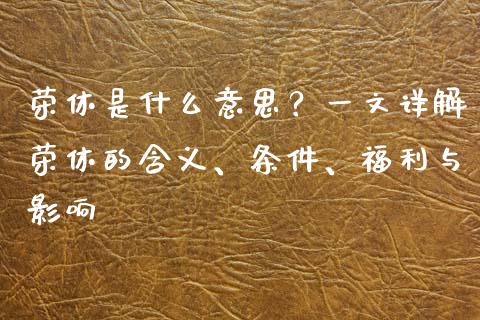 荣休是什么意思？一文详解
荣休的含义、条件、福利与
影响